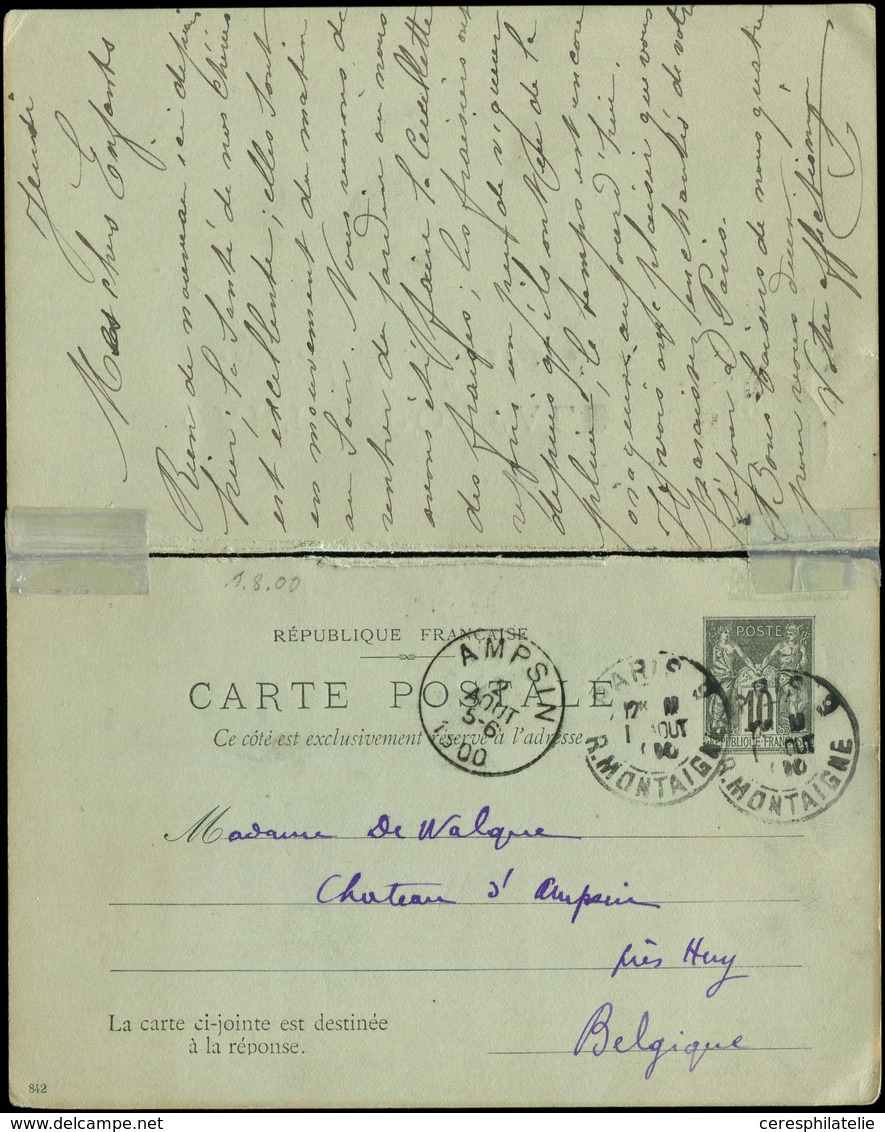 Jeudi
Mes chers Enfants
Rien de nouveau ici depuis
hier, la santé de nos chéries
est excellente; elles sont
en mouvement du matin
au soir. Nous venons de
rentrer du jardin où nous
avons été faire la cueillette
des fraises; les fraisiers ont
repris un peu de vigueur
depuis qu'ils ont de la
pluie; le temps est encore
orageux aujourd'hui.
Je vois avec plaisir que vous
paraissez enchantés de votre
séjour à Paris.
Bons baisers de nous quatre
pour vous deux
Votre affectionné
1.8.00
RÉPUBLIQUE FRANÇAISE
CARTE POSTALE
Ce côté est exclusivement réservé à l'adresse
POSTE
10
RÉPUBLIQUE FRANÇAISE
AMPSIN
2
AOUT
5-6
1900
PARIS 9
1 AOUT
00
R. MONTAIGNE
PARIS 9
AOUT
00
R. MONTAIGNE
Madame De Walque
Chateau d'Ampsin
près Huy
Belgique
La carte ci-jointe est destinée
à la réponse.
842
ceresphilatelie